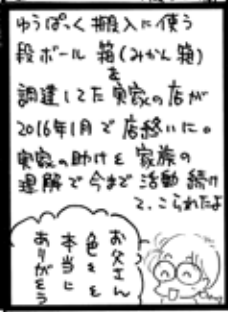 ゆうぱっく搬入に使う
段ボール箱(みかん箱)を
調達してた実家の店が
2016年1月で店終いに。
実家の助けと家族の
理解で今まで活動続け
て、こられたよ
お父さん
色々と
本当に
ありがとう